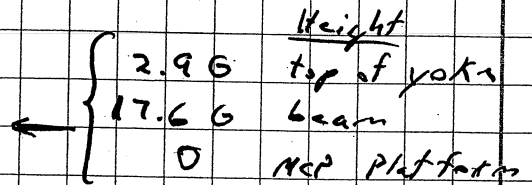 Height
2.9 G top of yoke
17.6 G beam
0 MCP Platform